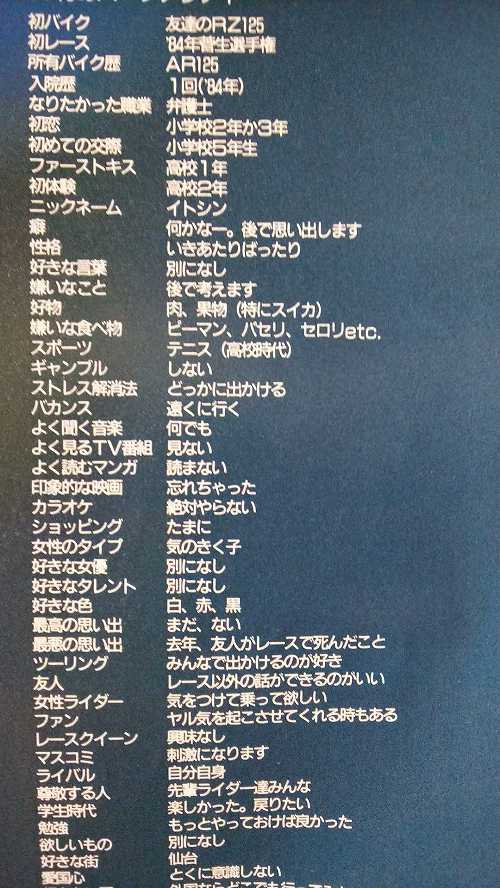 初バイク 友達のRZ125
初レース '84年菅生選手権
所有バイク歴 AR125
入院歴 1回('84年)
なりたかった職業 弁護士
初恋 小学校2年か3年
初めての交際 小学校5年生
ファーストキス 高校1年
初体験 高校2年
ニックネーム イトシン
癖 何かなー。後で思い出します
性格 いきあたりばったり
好きな言葉 別になし
嫌いなこと 後で考えます
好物 肉、果物（特にスイカ）
嫌いな食べ物 ピーマン、パセリ、セロリetc.
スポーツ テニス（高校時代）
ギャンブル しない
ストレス解消法 どっかに出かける
バカンス 遠くに行く
よく聞く音楽 何でも
よく見るTV番組 見ない
よく読むマンガ 読まない
印象的な映画 忘れちゃった
カラオケ 絶対やらない
ショッピング たまに
女性のタイプ 気のきく子
好きな女優 別になし
好きなタレント 別になし
好きな色 白、赤、黒
最高の思い出 まだ、ない
最悪の思い出 去年、友人がレースで死んだこと
ツーリング みんなで出かけるのが好き
友人 レース以外の話ができるのがいい
女性ライダー 気をつけて乗って欲しい
ファン ヤル気を起こさせてくれる時もある
レースクイーン 興味なし
マスコミ 刺激になります
ライバル 自分自身
尊敬する人 先輩ライダー達みんな
学生時代 楽しかった。戻りたい
勉強 もっとやっておけば良かった
欲しいもの 別になし
好きな街 仙台
愛国心 とくに意識しない